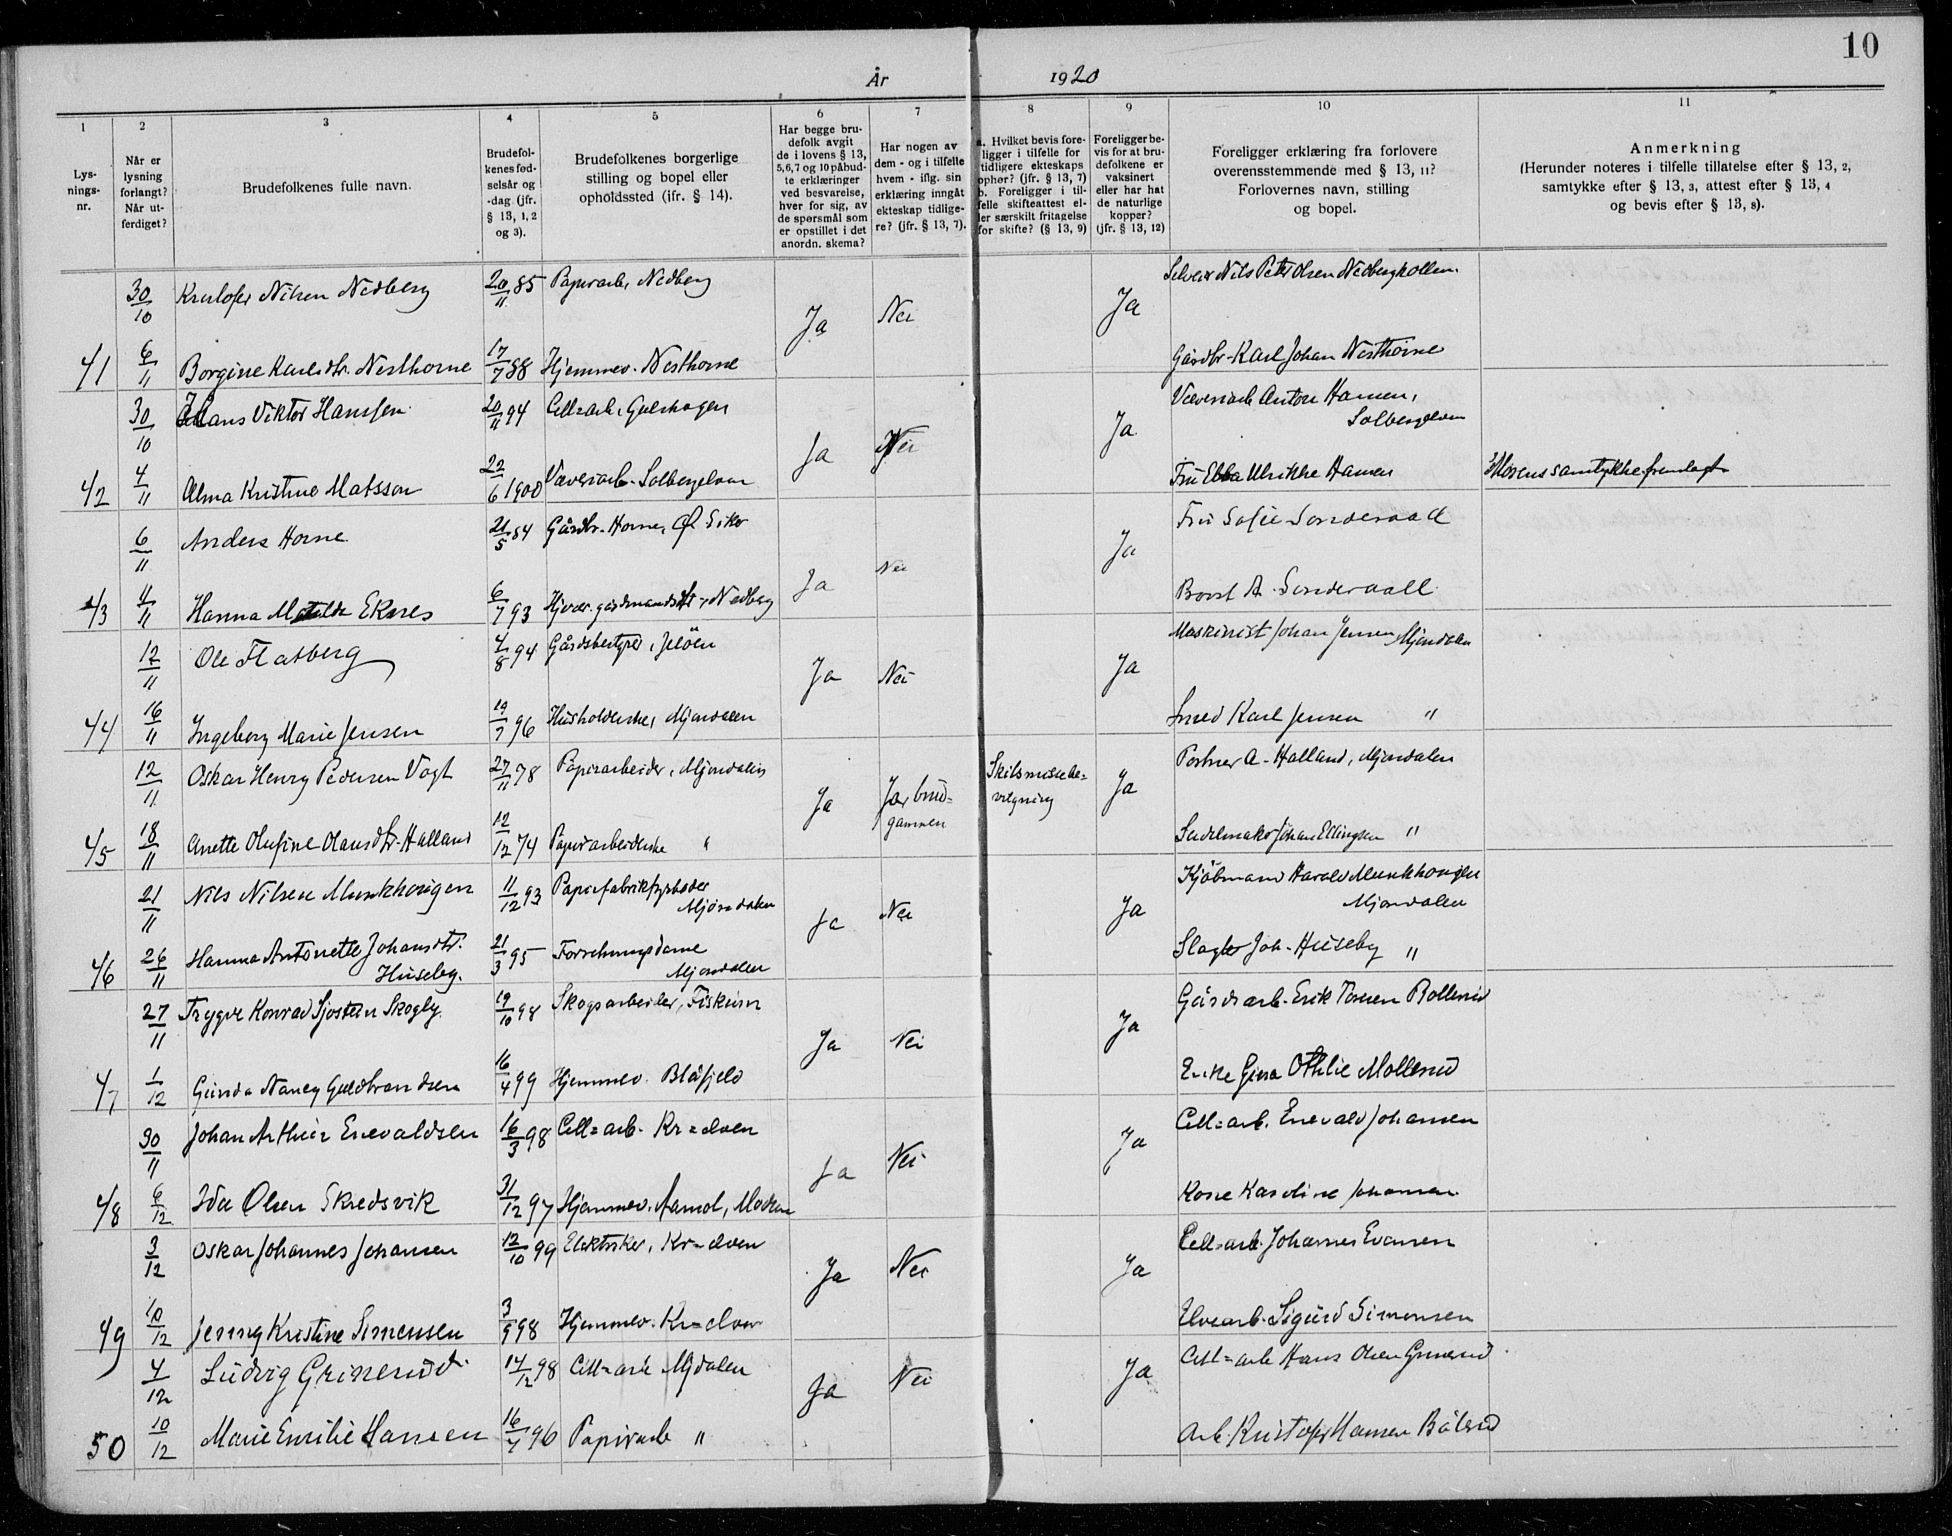 10
År 1920
1 2 3 4 5 6 7 8 9 10 11
Lys-
nings-
nr.
Når er
lysning
forlangt?
Når ut-
ferdiget?
Brudefolkenes fulle navn.
Brudefol-
kenes fød-
selsår og
-dag (jfr.
§ 13, 1, 2
og 3).
Brudefolkenes borgerlige
stilling og bopel eller
opholdssted (ifr. § 14).
Har begge bru-
defolk avgit
de i lovens § 13,
5,6,7 og 10 påbud-
te erklæringer
ved besvarelse,
hver for sig, av
de spørsmål som
er opstillet i det
anordn. skema?
Har nogen av
dem - og i tilfelle
hvem - iflg. sin
erklæring inngåt
ekteskap tidlige-
re? (jfr. § 13, 7).
a. Hvilket bevis fore-
ligger i tilfelle for
tidligere ekteskaps
ophør? (jfr. § 13, 7)
b. Foreligger i til-
felle skifteattest el-
ler særskilt fritagelse
for skifte? (§ 13, 9)
Foreligger be-
vis for at bru-
defolkene er
vaksinert
eller har hat
de naturlige
kopper?
(jfr. § 13, 12)
Foreligger erklæring fra forlovere
overensstemmende med § 13, 11?
Forlovernes navn, stilling
og bopel.
Anmerkning
(Herunder noteres i tilfelle tillatelse efter § 13, 2,
samtykke efter § 13, 3, attest efter § 13, 4
og bevis efter § 13, 8).
30/10 Kristofer Nilsen Nedberg 20/11 85 Papirarb. Nedberg Ja Nei Ja Selveier Nils Petter Olsen Nedbergkollen
41 6/11 Borgine Karlsdtr. Nesthorne 17/7 88 Hjemmev. Nesthorne Gårdbr. Karl Johan Nesthorne
30/10 Hans Viktor Hanssen 20/11 94 Cell=arb. Gulskogen Ja Nei Ja Væveriarb Anton Hansen,
Solbergelven
42 4/11 Alma Kristine Matsson 22/6 1900 Væveriarb. Solbergelven Fru Ebba Ulrikke Hansen Morens samtykke fremlagt
6/11 Anders Horne 21/5 84 Gårdbr. Horne, Ø Eiker Ja Nei Ja Fru Sofie Sønderaal
43 11/11 Hanna Matilde Eknes 6/7 93 Hjemv. gårdmandsdtr, Nedberg A. Sønderaall
12/11 Ole Flatberg 4/8 94 Gårdsbestyrer, Jeløen Ja Nei Ja Maskinist Johan Jensen Mjøndalen
44 16/11 Ingeborg Marie Jensen 19/7 96 Husholderske, Mjøndalen Smed Karl Jensen "
12/11 Oskar Henry Pedersen Vogt 27/11 78 Papirarbeider, Mjøndalen Ja Ja, brud=
gommen Skilsmissebe=
vilgning Ja Portner A. Halland, Mjøndalen
45 18/11 Anette Olufine Olausdtr. Halland 12/12 74 Papirarbeiderske " Sadelmaker Johan Ellingsen "
21/11 Nils Nilsen Munkhougen 11/12 93 Papirfabrikfyrbøder
Mjøndalen Ja Nei Ja Kjøbmand Harald Munkhougen
Mjøndalen
46 26/11 Hanna Antonette Johansdtr.
Huseby. 21/3 95 Forretningsdame
Mjøndalen Slagter Joh. Huseby "
27/11 Trygve Konrad Sjøsten Skogly 19/10 98 Skogsarbeider, Fiskum Ja Nei Ja Gårdsarb. Erik Bollerud
47 1/12 Gunda Nancy Guldbrandsen 16/4 99 Hjemmev. Blåfjeld Enke Gina Othlie Mollerud
30/11 Johan Arthur Enevaldsen 16/3 98 Cell=arb. Kr=elven Ja Nei Ja Cell=arb. Enevald Johansen
48 6/12 Ida Olsen Skredsvik 31/12 97 Hjemmev. Aamot, Modum Kone Karoline Johansen
3/12 Oskar Johannes Johansen 12/10 99 Elektriker, Kr=elven Ja Nei Ja Cell=arb. Johannes Evensen
49 10/12 Jenny Kristine Simensen 3/9 98 Hjemmev. Kr=elven Elvearb. Sigurd Simensen
4/12 Ludvig Grinerud 14/12 98 Cell=arb Mjdalen Ja Nei Ja Cell=arb Hans Olsen Grinerud
50 10/12 Marie Emilie Hansen 16/4 96 Papirarb " Arb. Kristofer Hansen Bålsrud